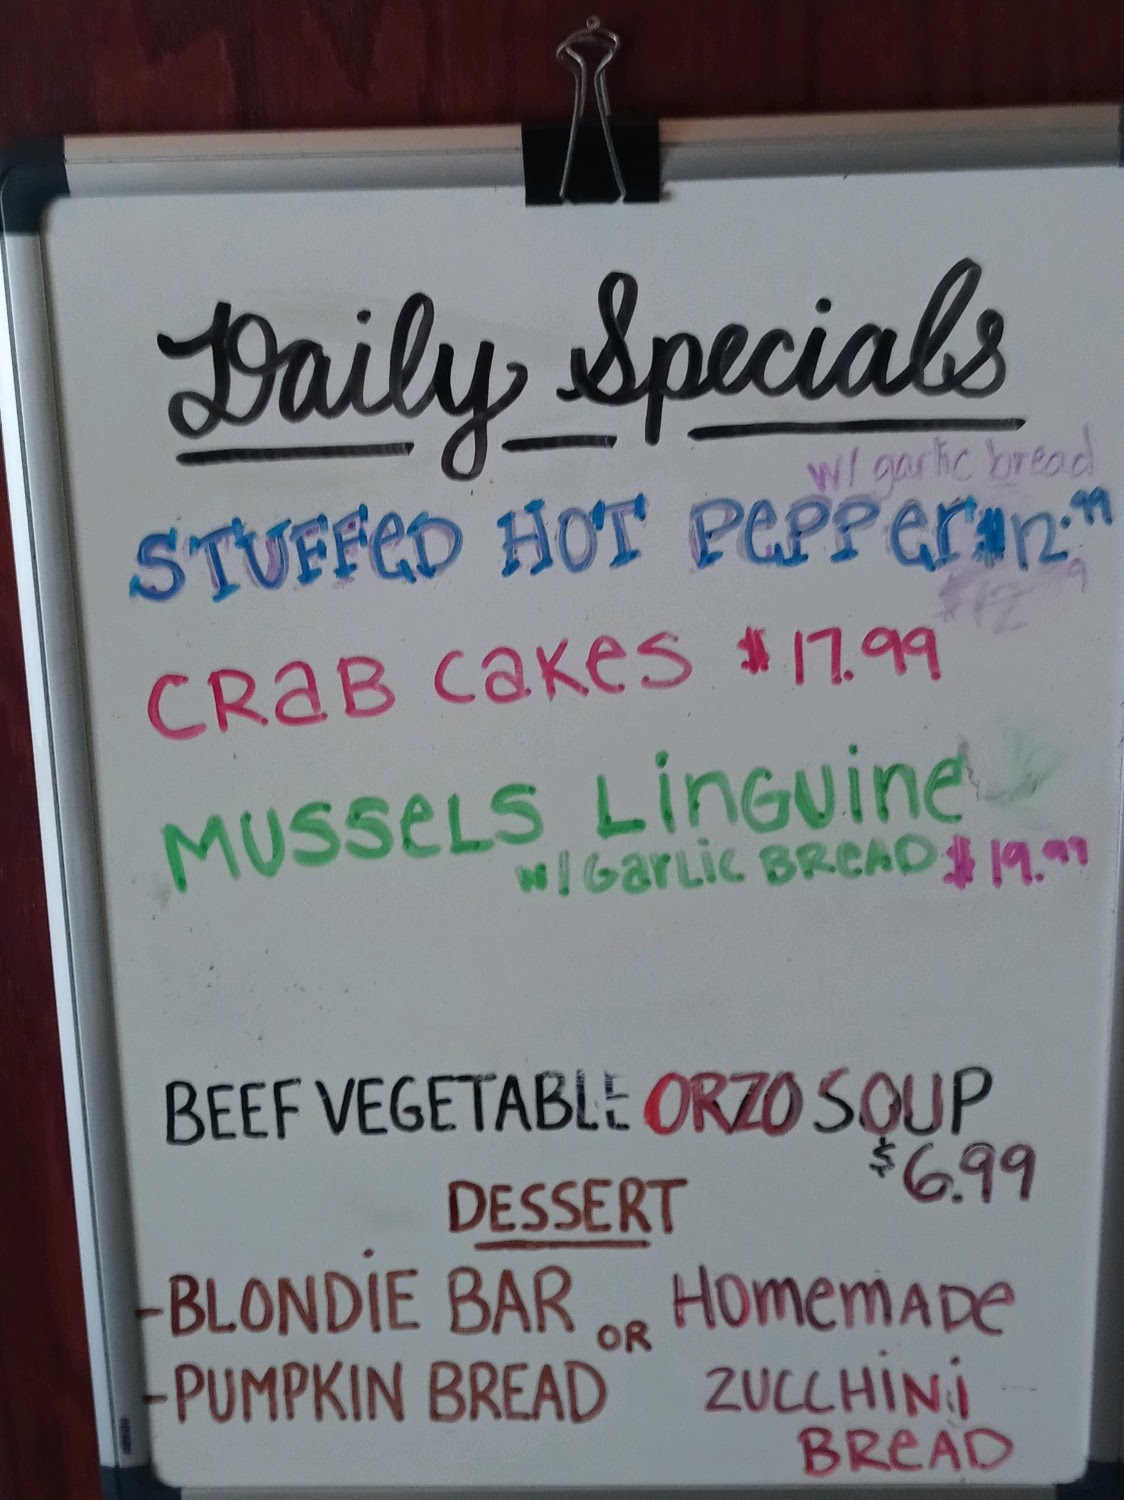 Daily Specials
w/ garlic bread
STUFFED HOT PEPPER $12.99
$12
CRAB CAKES $17.99
MUSSELS LINGUINE
w/ GARLIC BREAD $19.99
BEEF VEGETABLE ORZO SOUP
$6.99
DESSERT
-BLONDIE BAR OR HOMEMADE
-PUMPKIN BREAD ZUCCHINI
BREAD